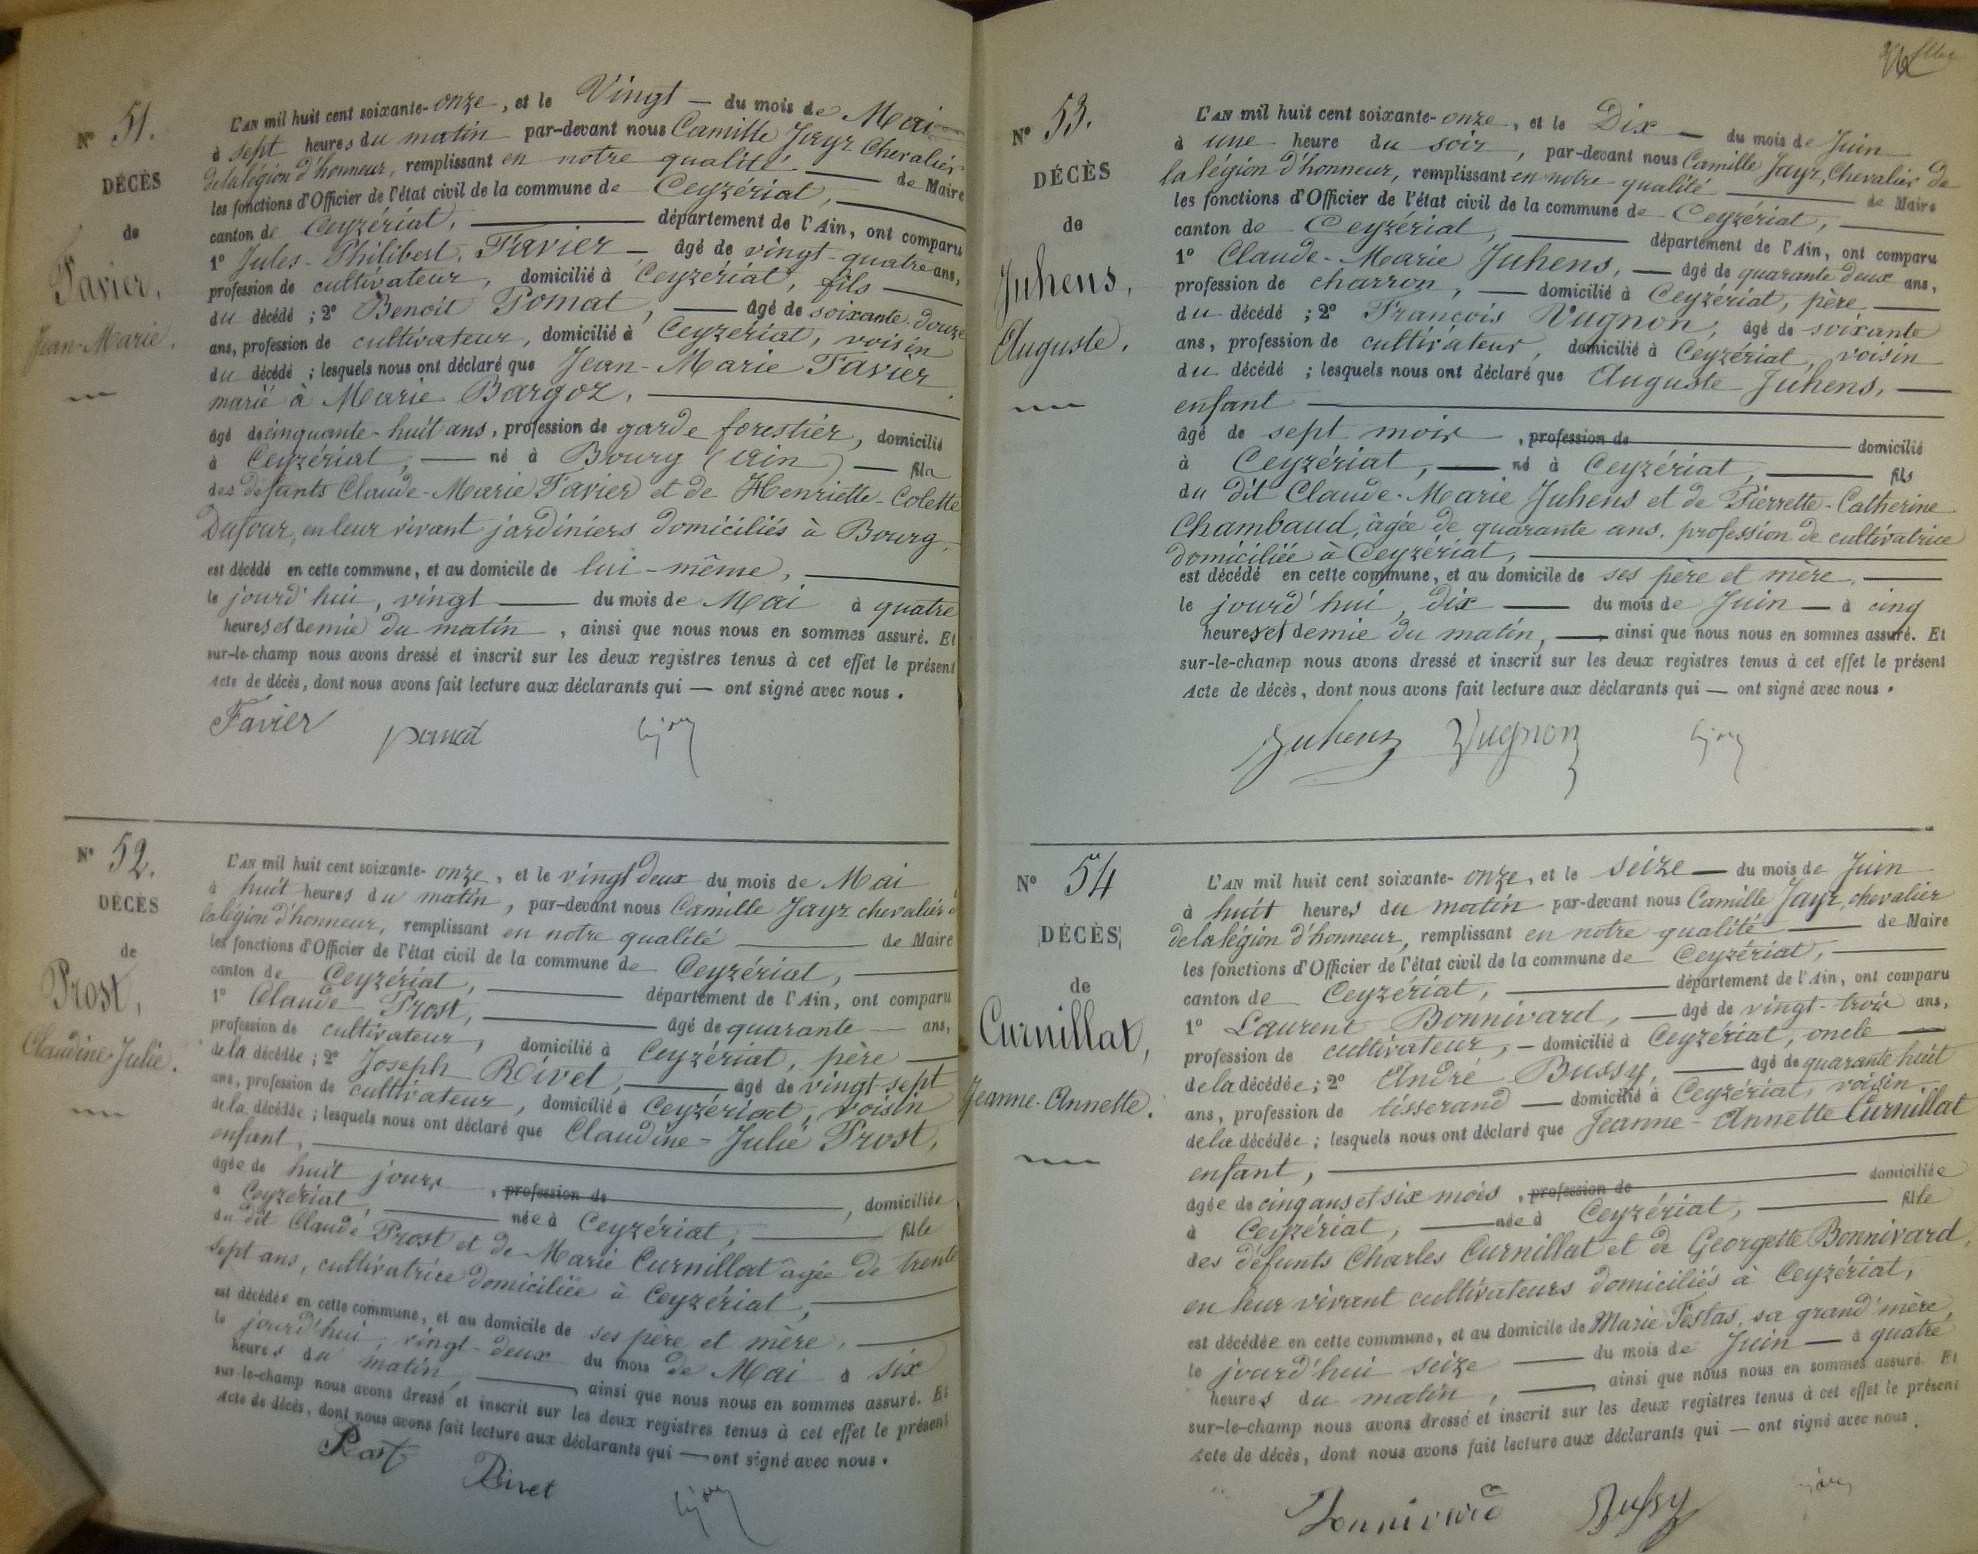 Nº 51.
DÉCÈS
de
Favier,
Jean-Marie.
L'AN mil huit cent soixante-onze, et le Vingt — du mois de Mai
à sept heures du matin par-devant nous Camille Jayr Chevalier
de la légion d'honneur, remplissant en notre qualité — de Maire
les fonctions d'Officier de l'état civil de la commune de Ceyzériat,
canton de Ceyzériat, — département de l'Ain, ont comparu
1º Jules-Philibert Favier — âgé de vingt-quatre ans,
profession de cultivateur, domicilié à Ceyzériat, fils
du décédé ; 2º Benoit Pomat, — âgé de soixante-douze
ans, profession de cultivateur, domicilié à Ceyzériat, voisin
du décédé ; lesquels nous ont déclaré que Jean-Marie Favier
marié à Marie Bargoz,
âgé de cinquante-huit ans, profession de garde forestier, domicilié
à Ceyzériat, — né à Bourg (Ain) — fils
des défunts Claude-Marie Favier et de Henriette-Colette
Dufour, en leur vivant jardiniers domiciliés à Bourg,
est décédé en cette commune, et au domicile de lui-même,
le jourd'hui, vingt — du mois de Mai à quatre
heures et demie du matin, ainsi que nous nous en sommes assuré. Et
sur-le-champ nous avons dressé et inscrit sur les deux registres tenus à cet effet le présent
Acte de décès, dont nous avons fait lecture aux déclarants qui — ont signé avec nous.
Favier pomat
Nº 52.
DÉCÈS
de
Prost,
Claudine-Julie.
L'AN mil huit cent soixante-onze, et le vingt deux du mois de Mai
à huit heures du matin, par-devant nous Camille Jayr chevalier de
la légion d'honneur, remplissant en notre qualité — de Maire
les fonctions d'Officier de l'état civil de la commune de Ceyzériat,
canton de Ceyzériat, — département de l'Ain, ont comparu
1º Claude Prost, — âgé de quarante — ans,
profession de cultivateur, domicilié à Ceyzériat, père
de la décédée ; 2º Joseph Rivet, — âgé de vingt-sept
ans, profession de cultivateur, domicilié à Ceyzériat, voisin
de la décédée ; lesquels nous ont déclaré que Claudine-Julie Prost,
enfant,
âgée de huit jours, profession de — domiciliée
à Ceyzériat, — née à Ceyzériat, — fille
du dit Claude Prost et de Marie Curnillat âgée de trente
sept ans, cultivatrice domiciliée à Ceyzériat,
est décédée en cette commune, et au domicile de ses père et mère,
le jourd'hui, vingt-deux du mois de Mai à six
heures du matin, — ainsi que nous nous en sommes assuré. Et
sur-le-champ nous avons dressé et inscrit sur les deux registres tenus à cet effet le présent
Acte de décès, dont nous avons fait lecture aux déclarants qui — ont signé avec nous.
Prost Rivet
Nº 53.
DÉCÈS
de
Juhens,
Auguste.
L'AN mil huit cent soixante-onze, et le Dix — du mois de Juin
à une heure du soir, par-devant nous Camille Jayr, Chevalier de
la légion d'honneur, remplissant en notre qualité — de Maire
les fonctions d'Officier de l'état civil de la commune de Ceyzériat,
canton de Ceyzériat, — département de l'Ain, ont comparu
1º Claude-Marie Juhens, — âgé de quarante deux ans,
profession de charron, — domicilié à Ceyzériat, père
du décédé ; 2º François Vugnon, âgé de soixante
ans, profession de cultivateur, domicilié à Ceyzériat, voisin
du décédé ; lesquels nous ont déclaré que Auguste Juhens,
enfant
âgé de sept mois, profession de — domicilié
à Ceyzériat, — né à Ceyzériat, — fils
du dit Claude-Marie Juhens et de Pierrette-Catherine
Chambaud, âgée de quarante ans, profession de cultivatrice
domiciliée à Ceyzériat,
est décédé en cette commune, et au domicile de ses père et mère,
le jourd'hui, dix — du mois de Juin — à cinq
heures et demie du matin, — ainsi que nous nous en sommes assuré. Et
sur-le-champ nous avons dressé et inscrit sur les deux registres tenus à cet effet le présent
Acte de décès, dont nous avons fait lecture aux déclarants qui — ont signé avec nous.
Juhens Vugnon
Nº 54
DÉCÈS
de
Curnillat,
Jeanne-Annette.
L'AN mil huit cent soixante-onze, et le seize — du mois de Juin
à huit heures du matin par-devant nous Camille Jayr, chevalier
de la légion d'honneur, remplissant en notre qualité — de Maire
les fonctions d'Officier de l'état civil de la commune de Ceyzériat,
canton de Ceyzériat, — département de l'Ain, ont comparu
1º Laurent Bonnivard, — âgé de vingt-trois ans,
profession de cultivateur, — domicilié à Ceyzériat, oncle
de la décédée ; 2º André Bussy, — âgé de quarante huit
ans, profession de tisserand — domicilié à Ceyzériat, voisin
de la décédée ; lesquels nous ont déclaré que Jeanne-Annette Curnillat
enfant,
âgée de cinq ans et six mois, profession de — domiciliée
à Ceyzériat, — née à Ceyzériat, — fille
des défunts Charles Curnillat et de Georgette Bonnivard,
en leur vivant cultivateurs domiciliés à Ceyzériat,
est décédée en cette commune, et au domicile de Marie Festas, sa grand'mère,
le jourd'hui seize — du mois de Juin — à quatre
heures du matin, — ainsi que nous nous en sommes assuré. Et
sur-le-champ nous avons dressé et inscrit sur les deux registres tenus à cet effet le présent
Acte de décès, dont nous avons fait lecture aux déclarants qui — ont signé avec nous.
Bonnivard Bussy